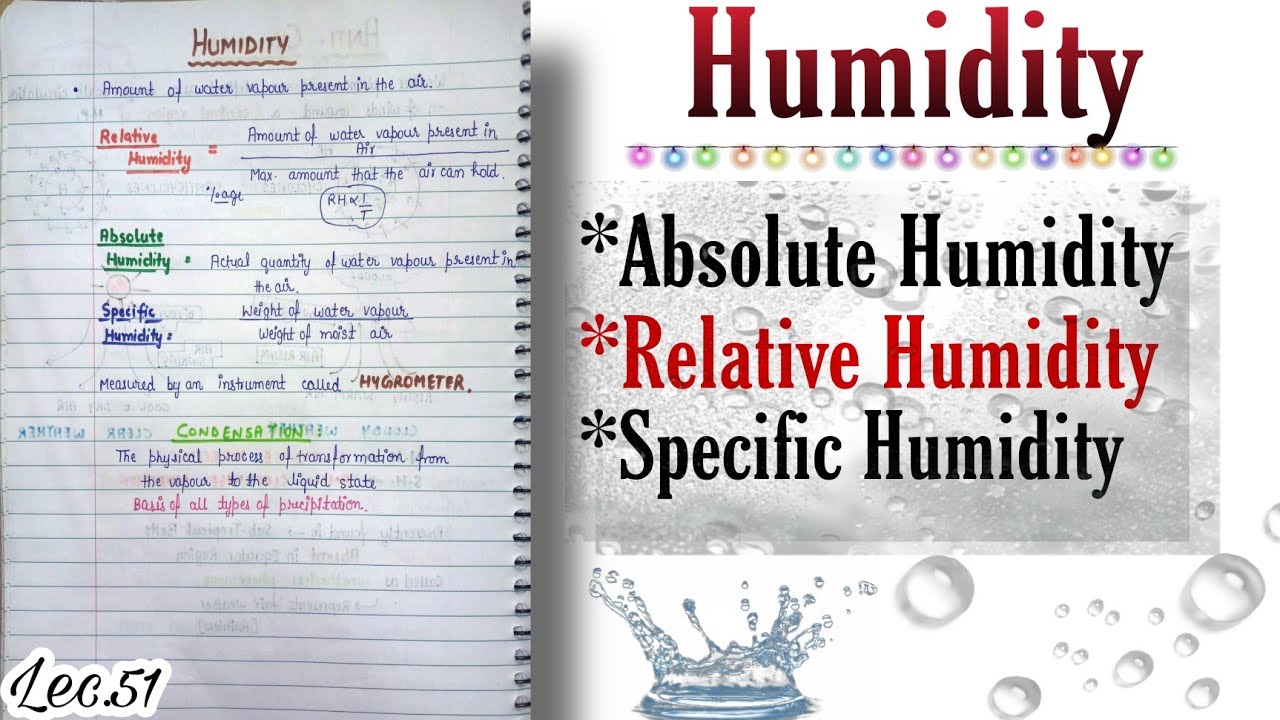 HUMIDITY
• Amount of water vapour present in the air.
Relative Humidity = Amount of water vapour present in Air
Max. amount that the air can hold.
%age
RH ∝ 1/T
Absolute
Humidity = Actual quantity of water vapour present in
the air.
Specific Weight of water vapour
Humidity = Weight of moist air
Measured by an instrument called HYGROMETER.
CONDENSATION :
The physical process of transformation from
the vapour to the liquid state
Basis of all types of precipitation.
Lec.51
Humidity
*Absolute Humidity
*Relative Humidity
*Specific Humidity